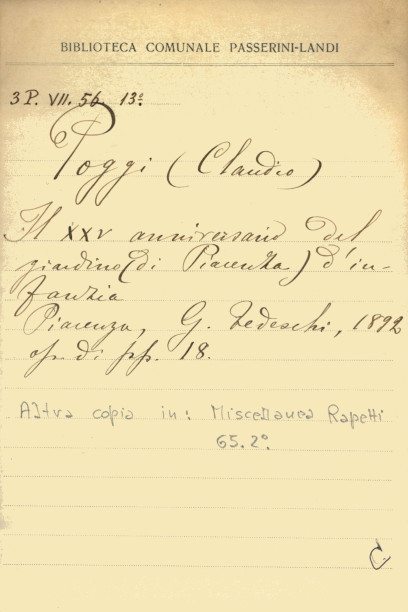 BIBLIOTECA COMUNALE PASSERINI-LANDI
3 P. VII. 56. 13º
Poggi (Claudio)
Il XXV anniversario del
giardino (di Piacenza) d'in-
fanzia
Piacenza, G. Tedeschi, 1892
op. di pp. 18.
Altra copia in: Miscellanea Rapetti
65.2º.
C